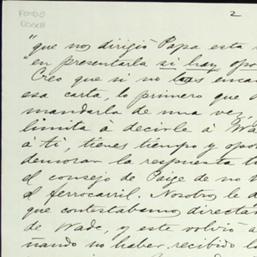 FONDO
2
"que nos dirigió Papa esta
en presentarla si hay opo
Creo que si no
esa carta, lo primero que
mandarla de una vez,
limita a decirle á Wa
á ti, tienes tiempo y opo
demoran la respuesta
el consejo de Paige de no
el ferrocarril. Nosotro le
que contestabamos directa
de Wade, y este volvió
nando no haber recibido